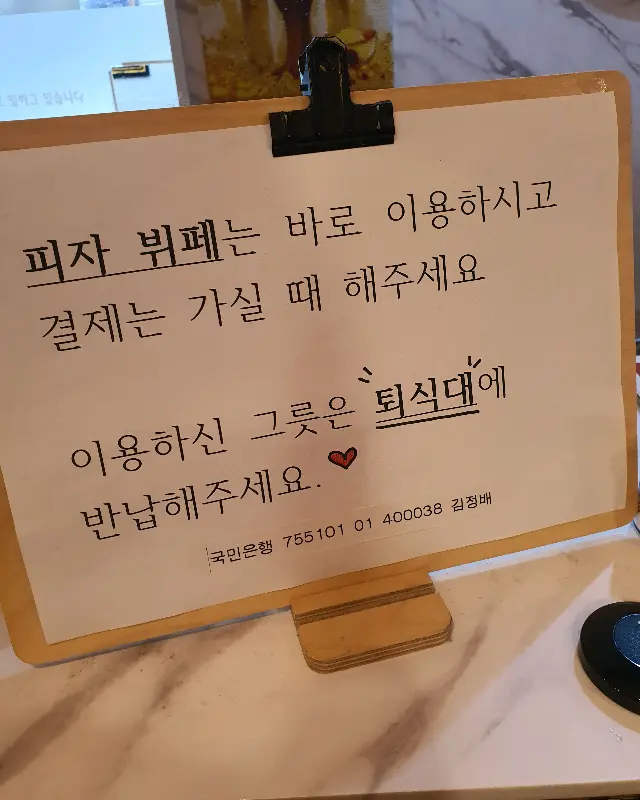 고 일하고 있습니다
피자 뷔페는 바로 이용하시고
결제는 가실 때 해주세요
이용하신 그릇은 퇴식대에
반납해주세요.
국민은행 755101 01 400038 김정배